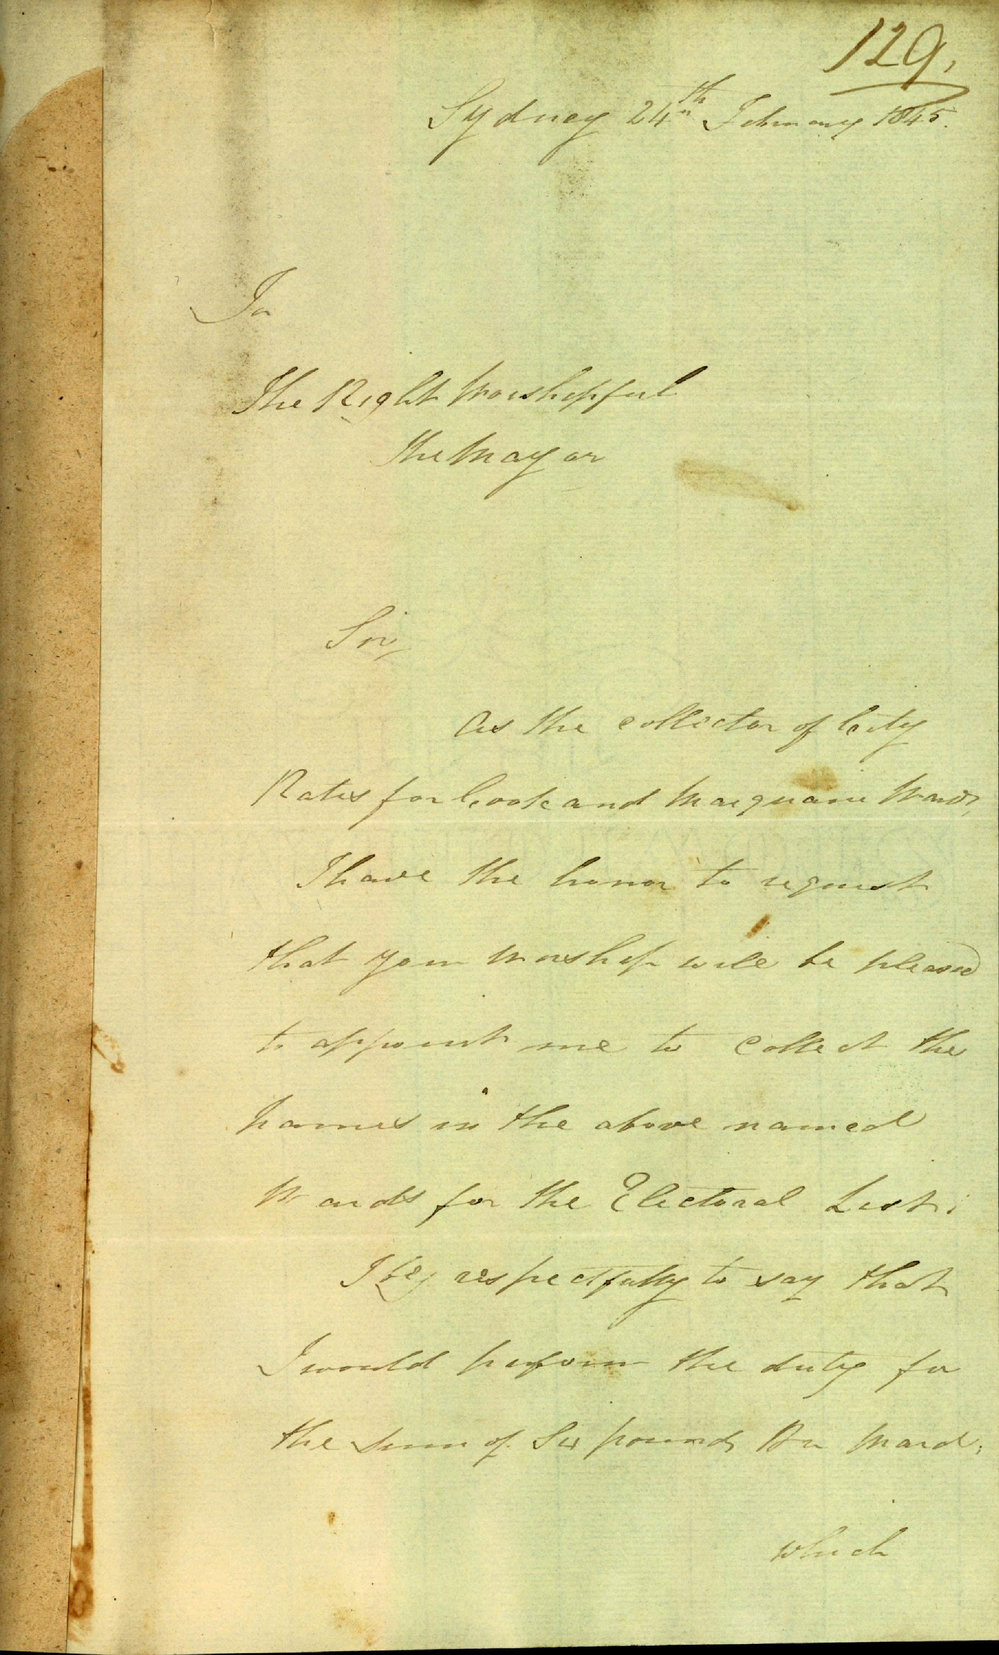 129.
Sydney 24th February 1845.
To
The Right Worshipful
The Mayor
Sir,
As the collector of City
Rates for Cook and Macquarie Wards,
I have the honor to request
that your Worship will be pleased
to appoint me to collect the
names in the above named
Wards for the Electoral List;
I beg respectfully to say that
I would perform the duty for
the sum of Six pounds Per Ward,
which